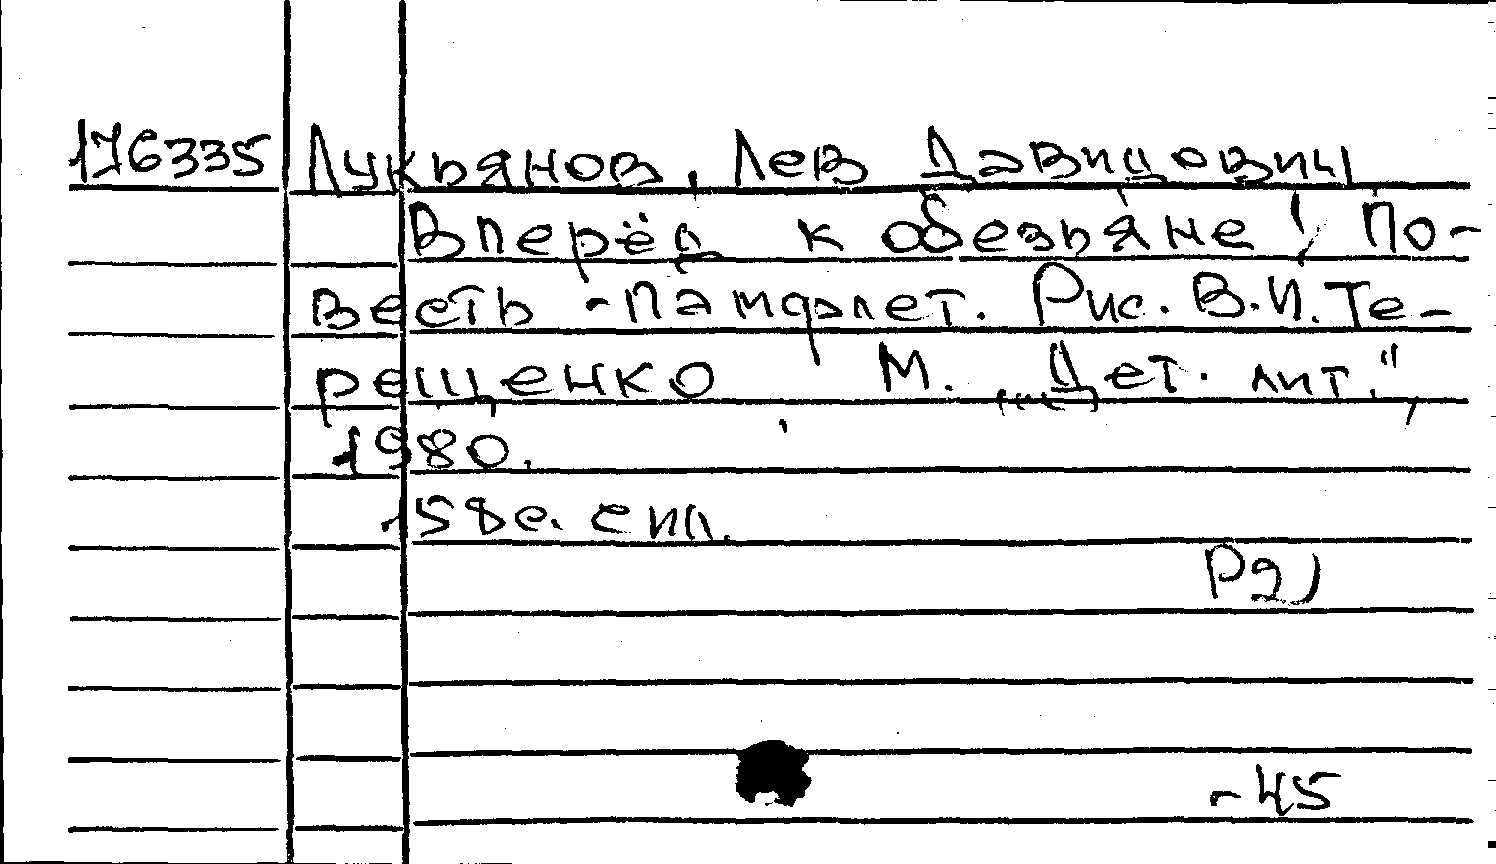 176335 Лукьянов, Лев Давидович
Вперёд к обезьяне! По-
весть-памфлет. Рис. В.И. Те-
рещенко М. „Дет. лит.",
1980.
158с. с ил.
Р2)
-45